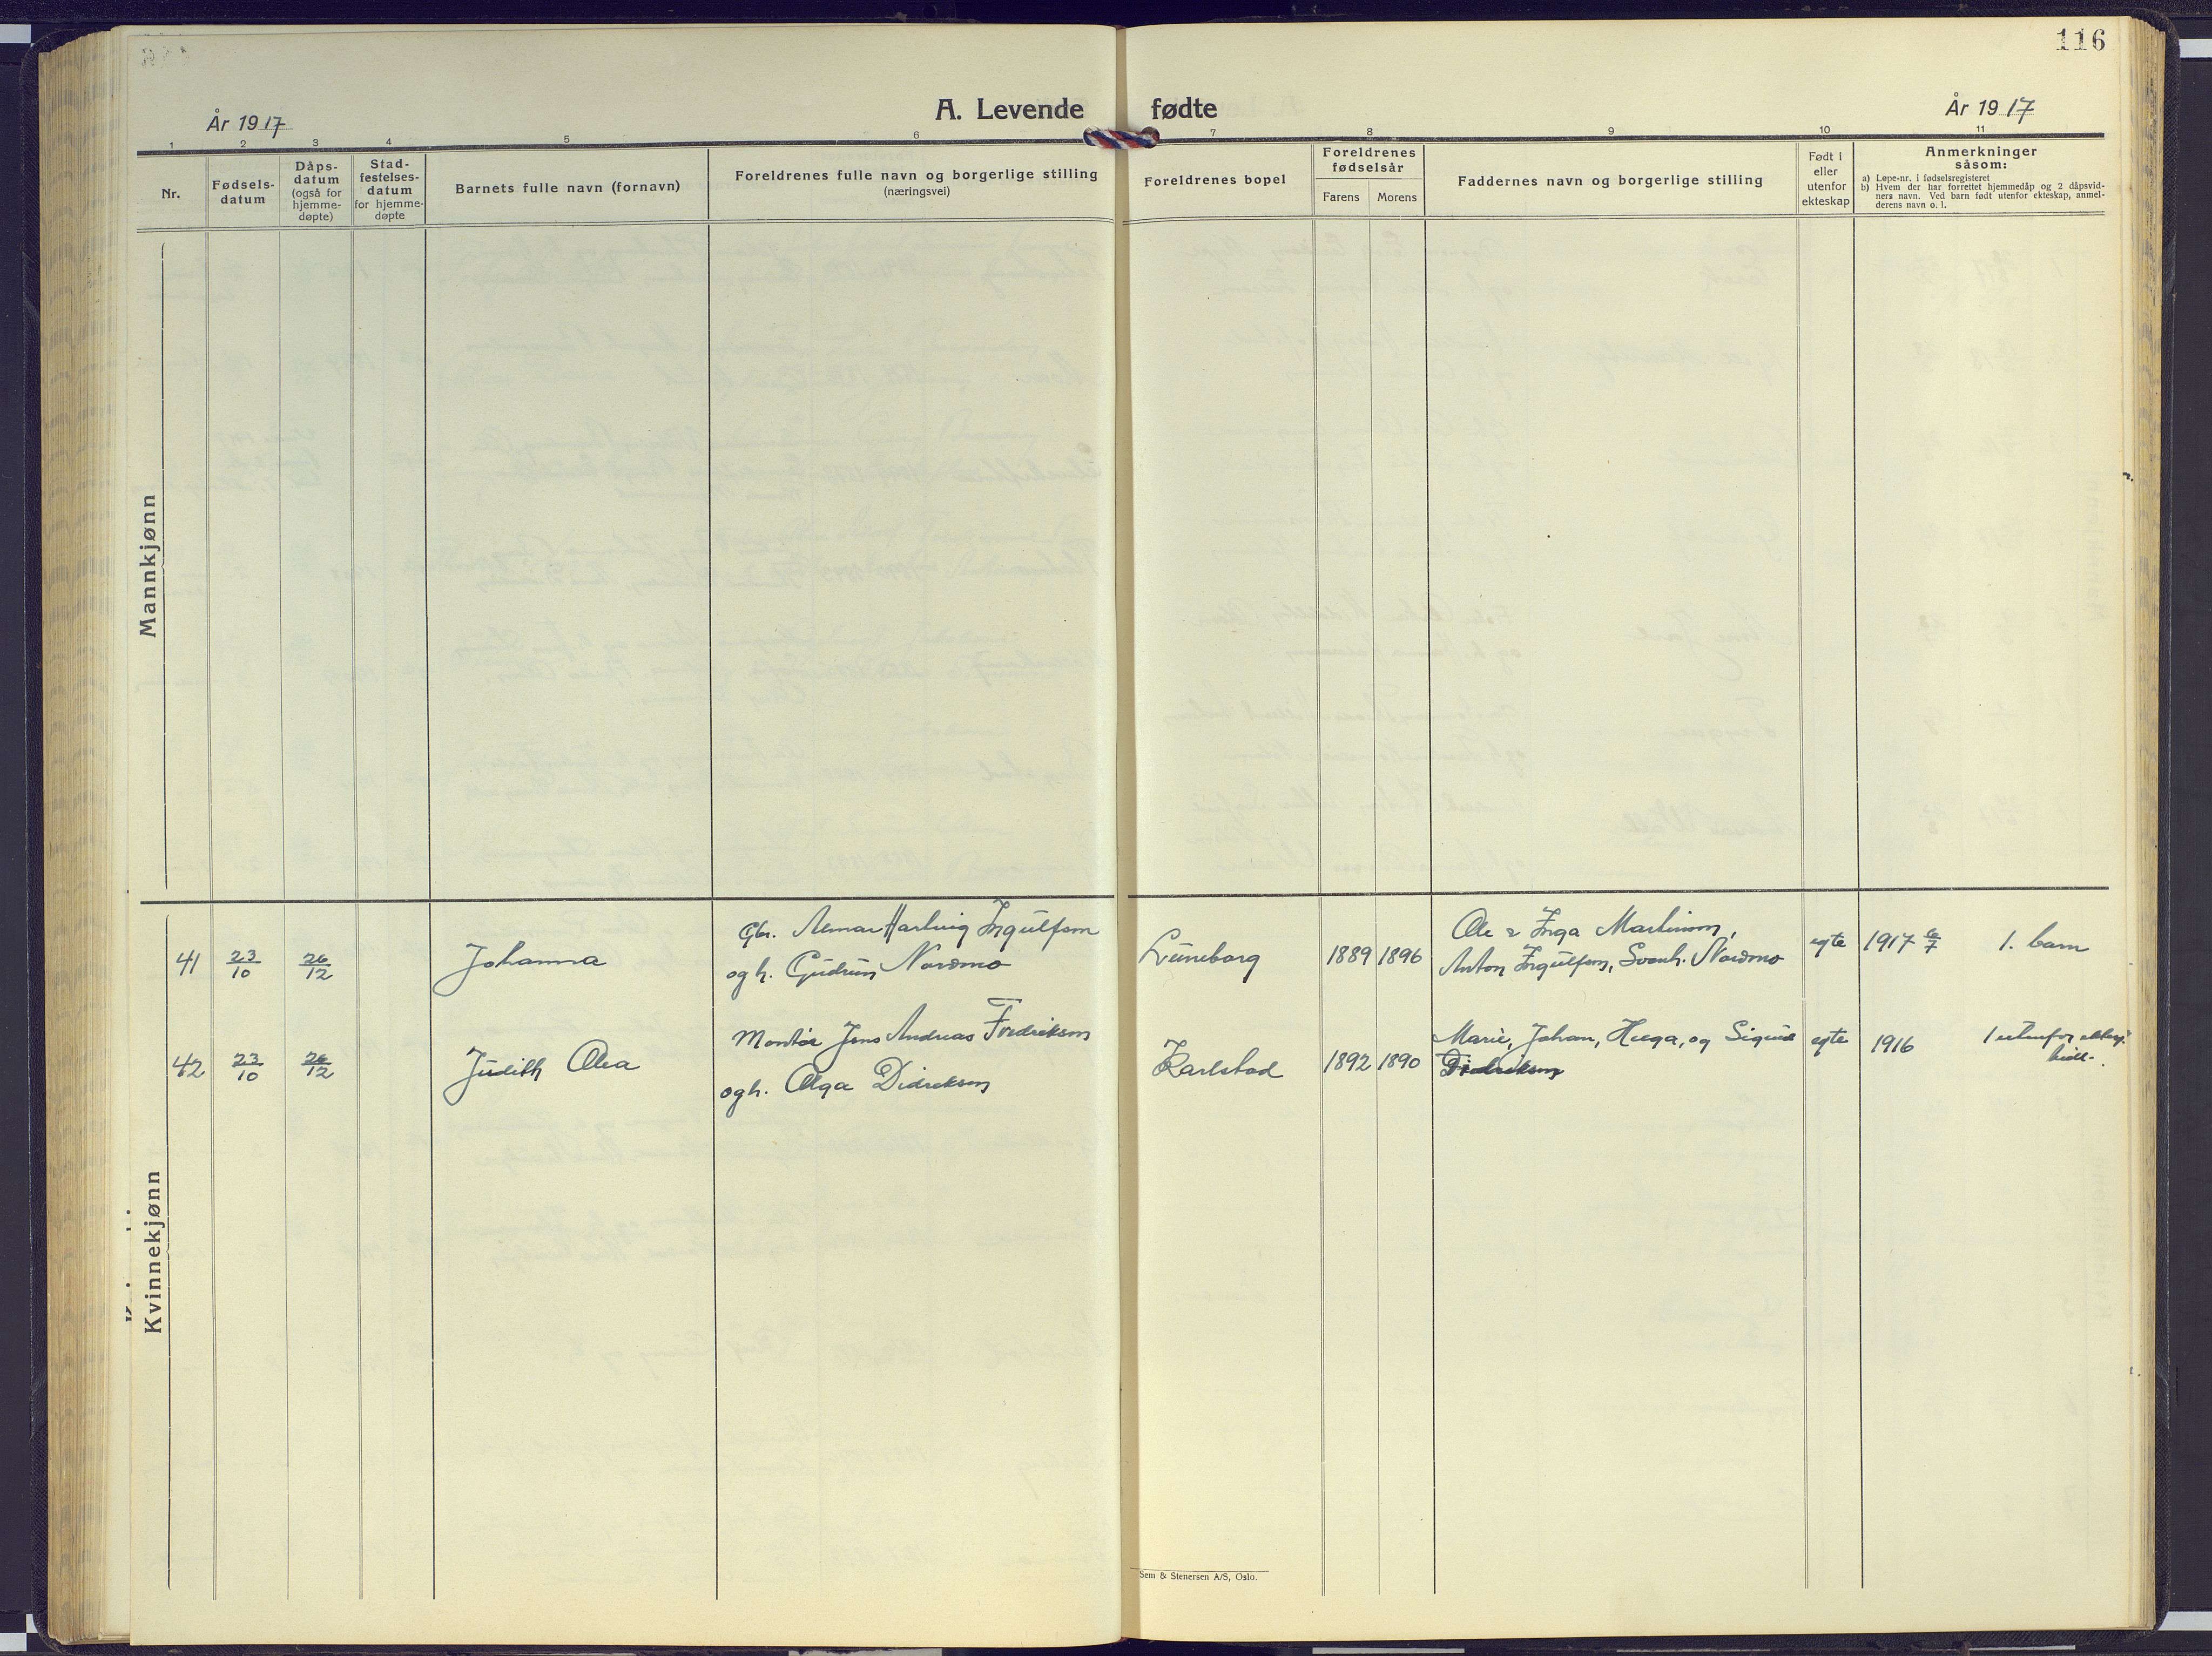 116
A. Levende fødte
År 1917
År 1917
1 2 3 4 5 6 7 8 9 10 11
Nr.
Fødsels-
datum
Dåps-
datum
(også for
hjemme-
døpte)
Stad-
festelses-
datum
for hjemme-
døpte
Barnets fulle navn (fornavn)
Foreldrenes fulle navn og borgerlige stilling
(næringsvei)
Foreldrenes bopel
Foreldrenes
fødselsår
Farens Morens
Faddernes navn og borgerlige stilling
Født i
eller
utenfor
ekteskap
Anmerkninger
såsom:
a) Løpe-nr. i fødselsregisteret
b) Hvem der har forrettet hjemmedåp og 2 dåpsvid-
ners navn. Ved barn født utenfor ekteskap, anmel-
derens navn o. l.
Mannkjønn
Kvinnekjønn
41 23/10 26/12 Johanna
Gbr. Hartvig Ingulfsen
og h. Gudrun Nordmo
Luneborg 1889 1896
Ole & Inga Martinsen,
Anton Ingulfsen, Svanh. Nordmo
egte 1917 6/7 1. barn
42 23/10 26/12 Judith Olea
Montør Jens Andreas Fredriksen
og h. Olga Didriksen
Karlstad 1892 1890
Marie, Johan, Helga, og Sigurd
Didriksen
egte 1916 1 utenfor